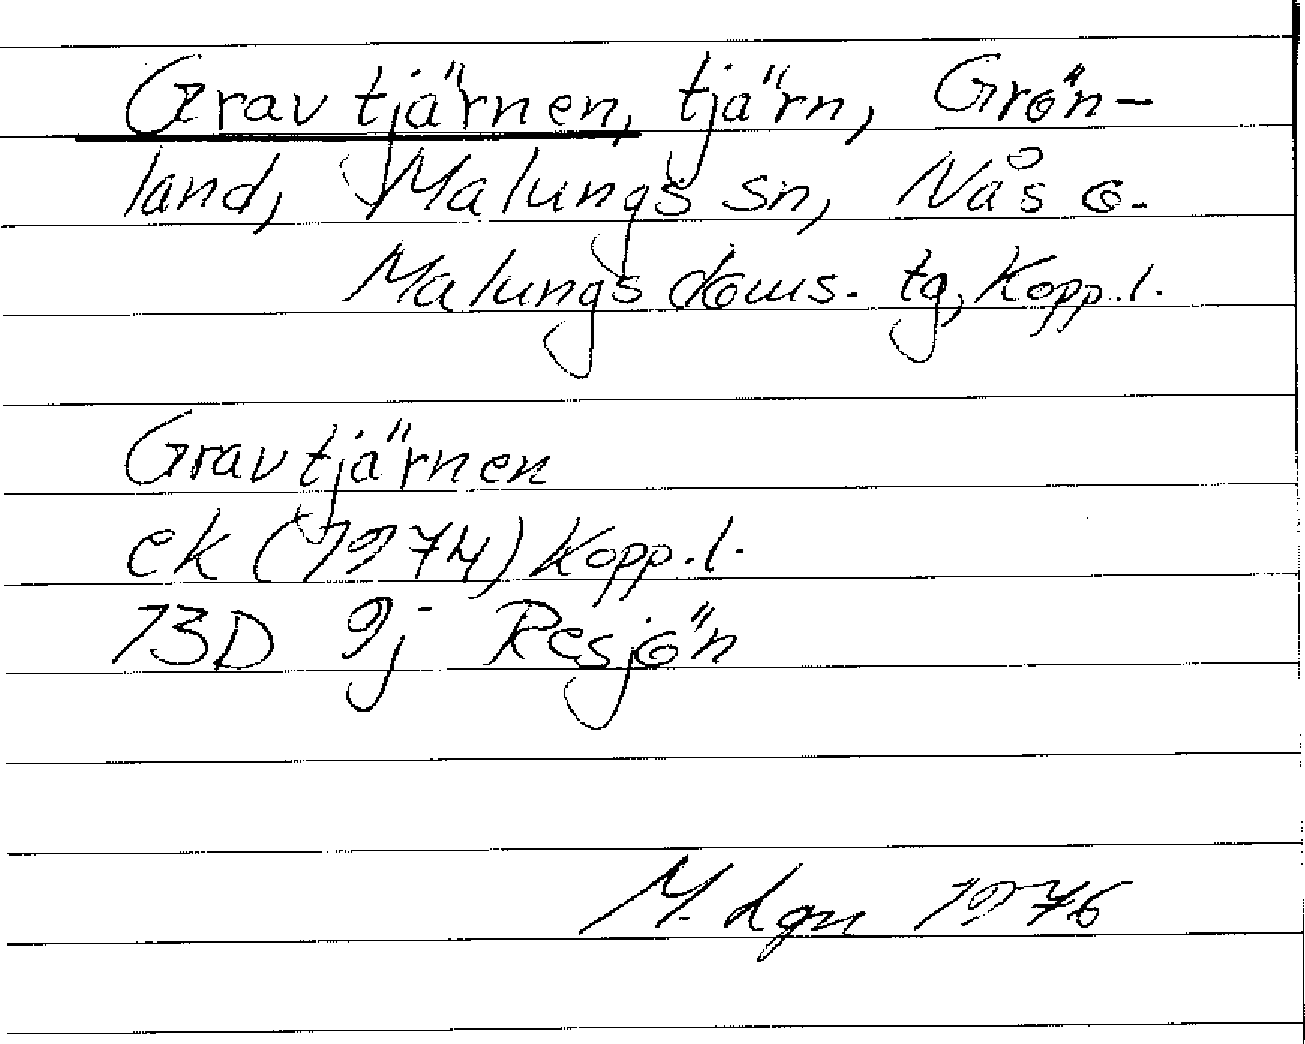 Gravtjärnen, tjärn, Grön-
land, Malungs sn, Nås o.
Malungs doms. tg, Kopp.l.
Gravtjärnen
ek (1974) Kopp.l.
13D 9j Resjön
M. Lgn 1976